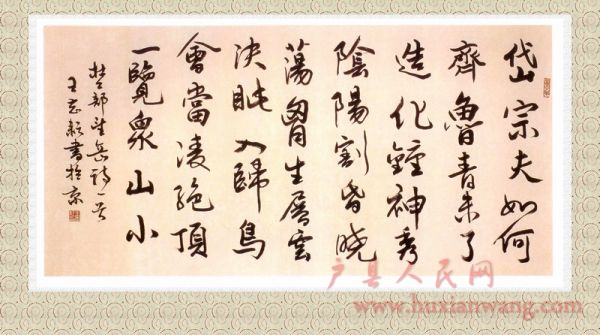 岱宗夫如何
齊魯青未了
造化鐘神秀
陰陽割昏曉
蕩胷生層雲
決眦入歸鳥
會當凌絕頂
一覽衆山小
望岳詩一首
書於京
户县人民网
www.huxianwang.com